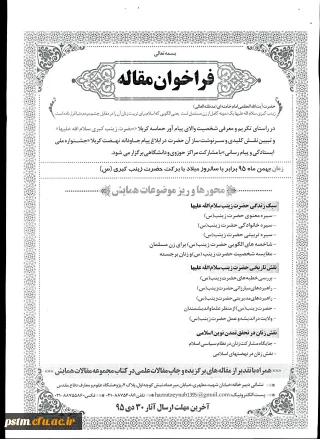 بسمه تعالی
فراخوان مقاله
حضرت آیت الله العظمی امام خامنه ای (مدظله العالی)
در راستای تکریم و معرفی شخصیت والای پیام آور حماسه کربلا «حضرت زینب کبری سلام الله علیها»
و تبیین نقش کلیدی و سرنوشت ساز آن حضرت در ابلاغ پیام جاودانه نهضت کربلا «جشنواره ملی
ایستادگی و پیام رسانی» با مشارکت مراکز حوزوی و دانشگاهی برگزار می شود.
زمان بهمن ماه ۹۵ برابر با سالروز میلاد با برکت حضرت زینب کبری (س)
محورها و ریز موضوعات همایش
سبک زندگی حضرت زینب سلام الله علیها
- سیره معنوی حضرت زینب(س)
- سیره خانوادگی حضرت زینب(س)
- سیره تربیتی حضرت زینب(س)
- شاخصه های الگویی حضرت زینب(س) برای زن مسلمان
- مقایسه شخصیت حضرت زینب(س) و زنان برجسته
نقش تاریخی حضرت زینب سلام الله علیها
- بررسی خطبه های حضرت زینب(س)
- راهبردهای مبارزاتی حضرت زینب(س)
- راهبردهای مدیریتی حضرت زینب(س)
- حضرت زینب(س) از منظر علما و اندیشمندان
- ولایت در اندیشه و عمل حضرت زینب(س)
نقش زنان در تحقق تمدن نوین اسلامی
- جایگاه مشارکت زنان در نظام سیاسی اسلام
- نقش زنان در نهضتهای اسلامی
«همراه با تقدیر از مقاله های برگزیده و چاپ مقالات علمی در کتاب مجموعه مقالات همایش»
آخرین مهلت ارسال آثار ۳۰ دی ۹۵
pstm.cfu.ac.ir